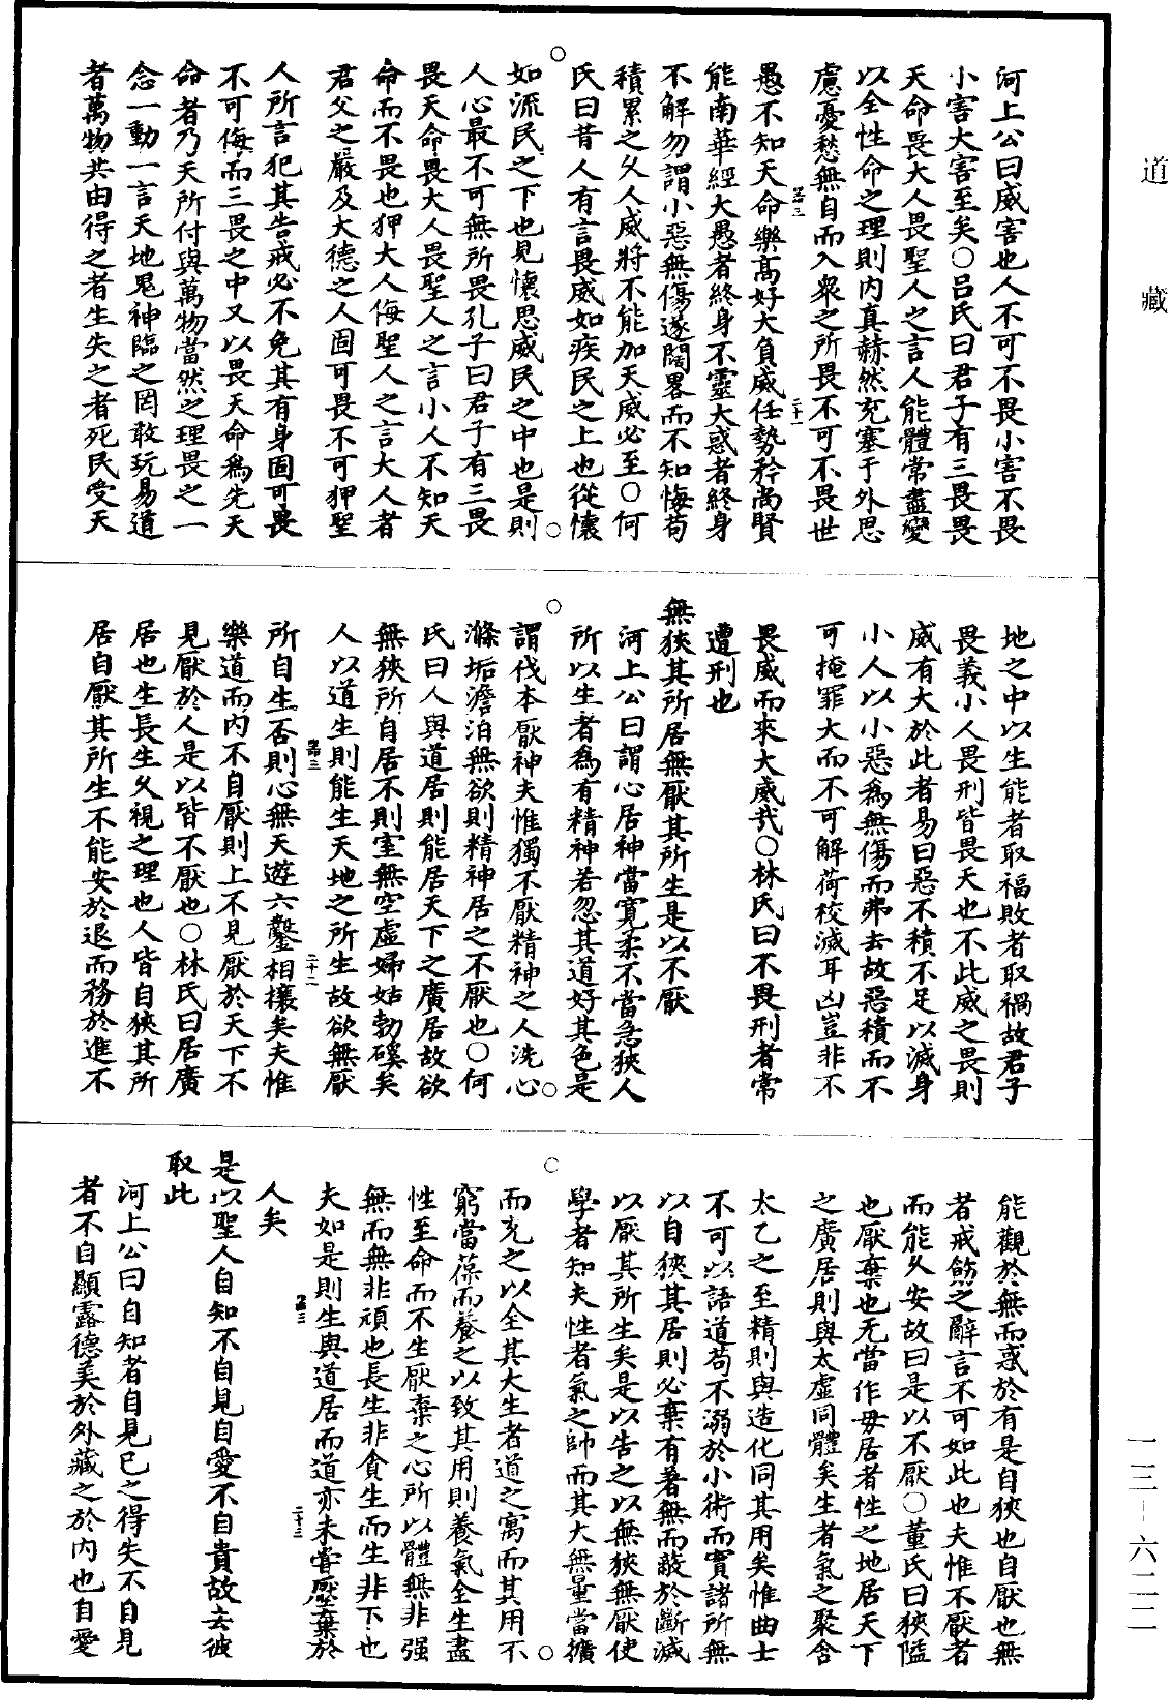 道藏
河上公曰威害也人不可不畏小害不畏
小害大害至矣○吕氏曰君子有三畏畏
天命畏大人畏聖人之言人能體常盡變
以全性命之理則内真赫然充塞于外思
慮憂愁無自而入衆之所畏不可不畏世
愚不知天命樂高好大負威任勢矜尚賢
能南華經大愚者終身不靈大惑者終身
不解勿謂小惡無傷遂闊畧而不知悔苟
積累之久人威將不能加天威必至○何
氏曰昔人有言畏威如疾民之上也從懷
如流民之下也見懷思威民之中也是則
人心最不可無所畏孔子曰君子有三畏
畏天命畏大人畏聖人之言小人不知天
命而不畏也狎大人侮聖人之言大人者
君父之嚴及大德之人固可畏不可狎聖
人所言犯其告戒必不免其有身固可畏
不可侮而三畏之中又以畏天命爲先天
命者乃天所付與萬物當然之理畏之一
念一動一言天地鬼神臨之罔敢玩易道
者萬物共由得之者生失之者死民受天
地之中以生能者取福敗者取禍故君子
畏義小人畏刑皆畏天也不此威之畏則
威有大於此者易曰惡不積不足以滅身
小人以小惡爲無傷而弗去故惡積而不
可掩罪大而不可解荷校滅耳凶豈非不
畏威而來大威哉○林氏曰不畏刑者常
遭刑也
無狹其所居無厭其所生是以不厭
河上公曰謂心居神當寬柔不當急狹人
所以生者爲有精神若忽其道好其色是
謂伐本厭神夫惟獨不厭精神之人洗心
滌垢澹泊無欲則精神居之不厭也○何
氏曰人與道居則能居天下之廣居故欲
無狹所自居不則室無空虚婦姑勃磎矣
人以道生則能生天地之所生故欲無厭
所自生否則心無天遊六鑿相攘矣夫惟
樂道而内不自厭則上不見厭於天下不
見厭於人是以皆不厭也○林氏曰居廣
居也生長生久視之理也人皆自狹其所
居自厭其所生不能安於退而務於進不
能觀於無而惑於有是自狹也自厭也無
者戒飭之辭言不可如此也夫惟不厭者
而能久安故曰是以不厭○董氏曰狹隘
也厭棄也无當作毋居者性之地居天下
之廣居則與太虛同體矣生者氣之聚含
太乙之至精則與造化同其用矣惟曲士
不可以語道苟不溺於小術而實諸所無
以自狹其居則必棄有著無而蔽於斷滅
以厭其所生矣是以告之以無狹無厭使
學者知夫性者氣之帥而其大無量當擴
而充之以全其大生者道之寓而其用不
窮當葆而養之以致其用則養氣全生盡
性至命而不生厭棄之心所以體無非强
無而無非頑也長生非貪生而生非下也
夫如是則生與道居而道亦未嘗壓棄於
人矣
是以聖人自知不自見自愛不自貴故去彼
取此
河上公曰自知者自見已之得失不自見
者不自顯露德美於外藏之於内也自愛
一三－六二二